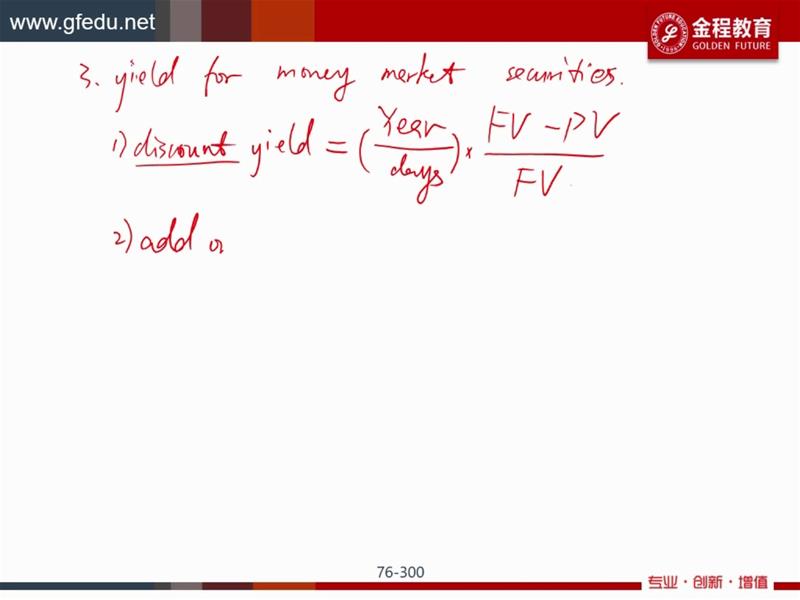 www.gfedu.net
金程教育
GOLDEN FUTURE
3. yield for money market securities.
1) discount yield = (Year/days) × (FV - PV)/FV
2) add o
76-300
专业·创新·增值